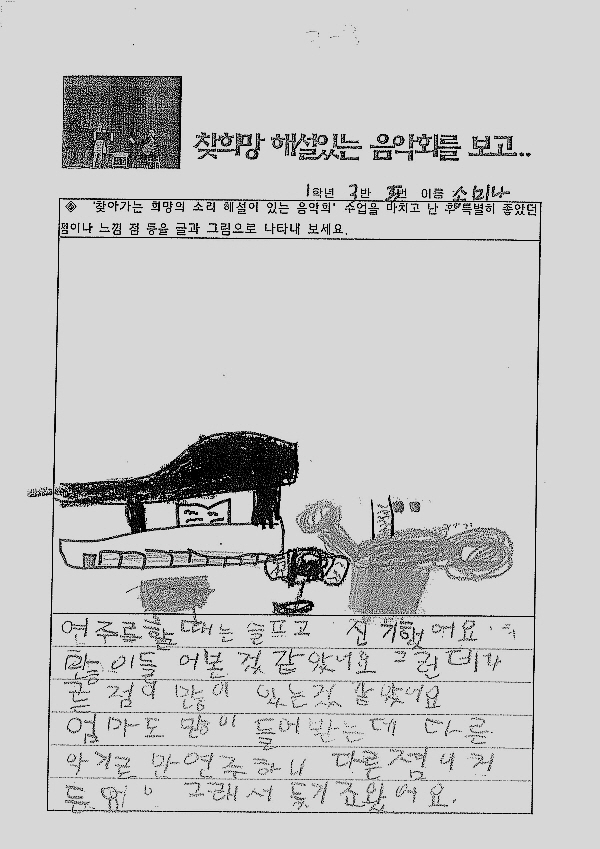 찾희망 해설있는 음악회를 보고..
1학년 3반 번 이름 소미나
◈ '찾아가는 희망의 소리 해설이 있는 음악회' 수업을 마치고 난 후 특별히 좋았던
점이나 느낌 점 등을 글과 그림으로 나타내 보세요.
연주르할 때는 슬프고 신기했어요
많이들 어본것 같았어요 그런데
점이 많이 있는것 같았어요
얼마도 많이 들어 는데 다른
악기로 만연주하니 다른점
그래서 듣기 죠왔어요.